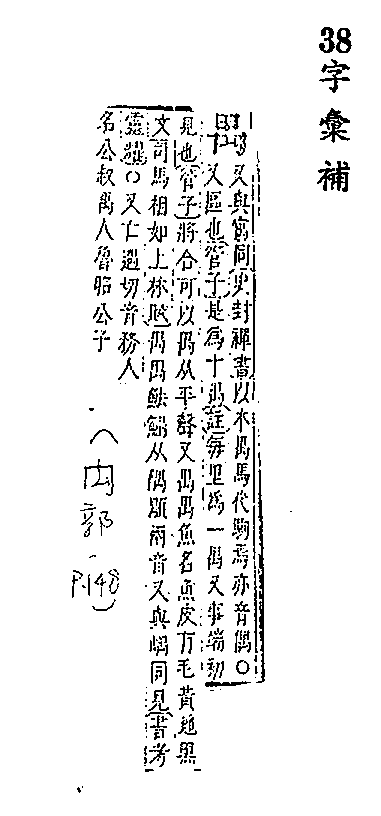 38字彙補
禺 又與寓同史封禪書以木禺馬代駒焉亦音偶○
又區也管子是為十禺註每里為一禺又事端初
見也管子將合可以禺从平聲又禺禺魚名魚皮有毛黃地黑
文司馬相如上林賦禺禺魼鰨从隅顒兩音又與嵎同見書考
靈耀○又亡遇切音務人
名公叔禺人魯昭公子
(內部·
P.148)